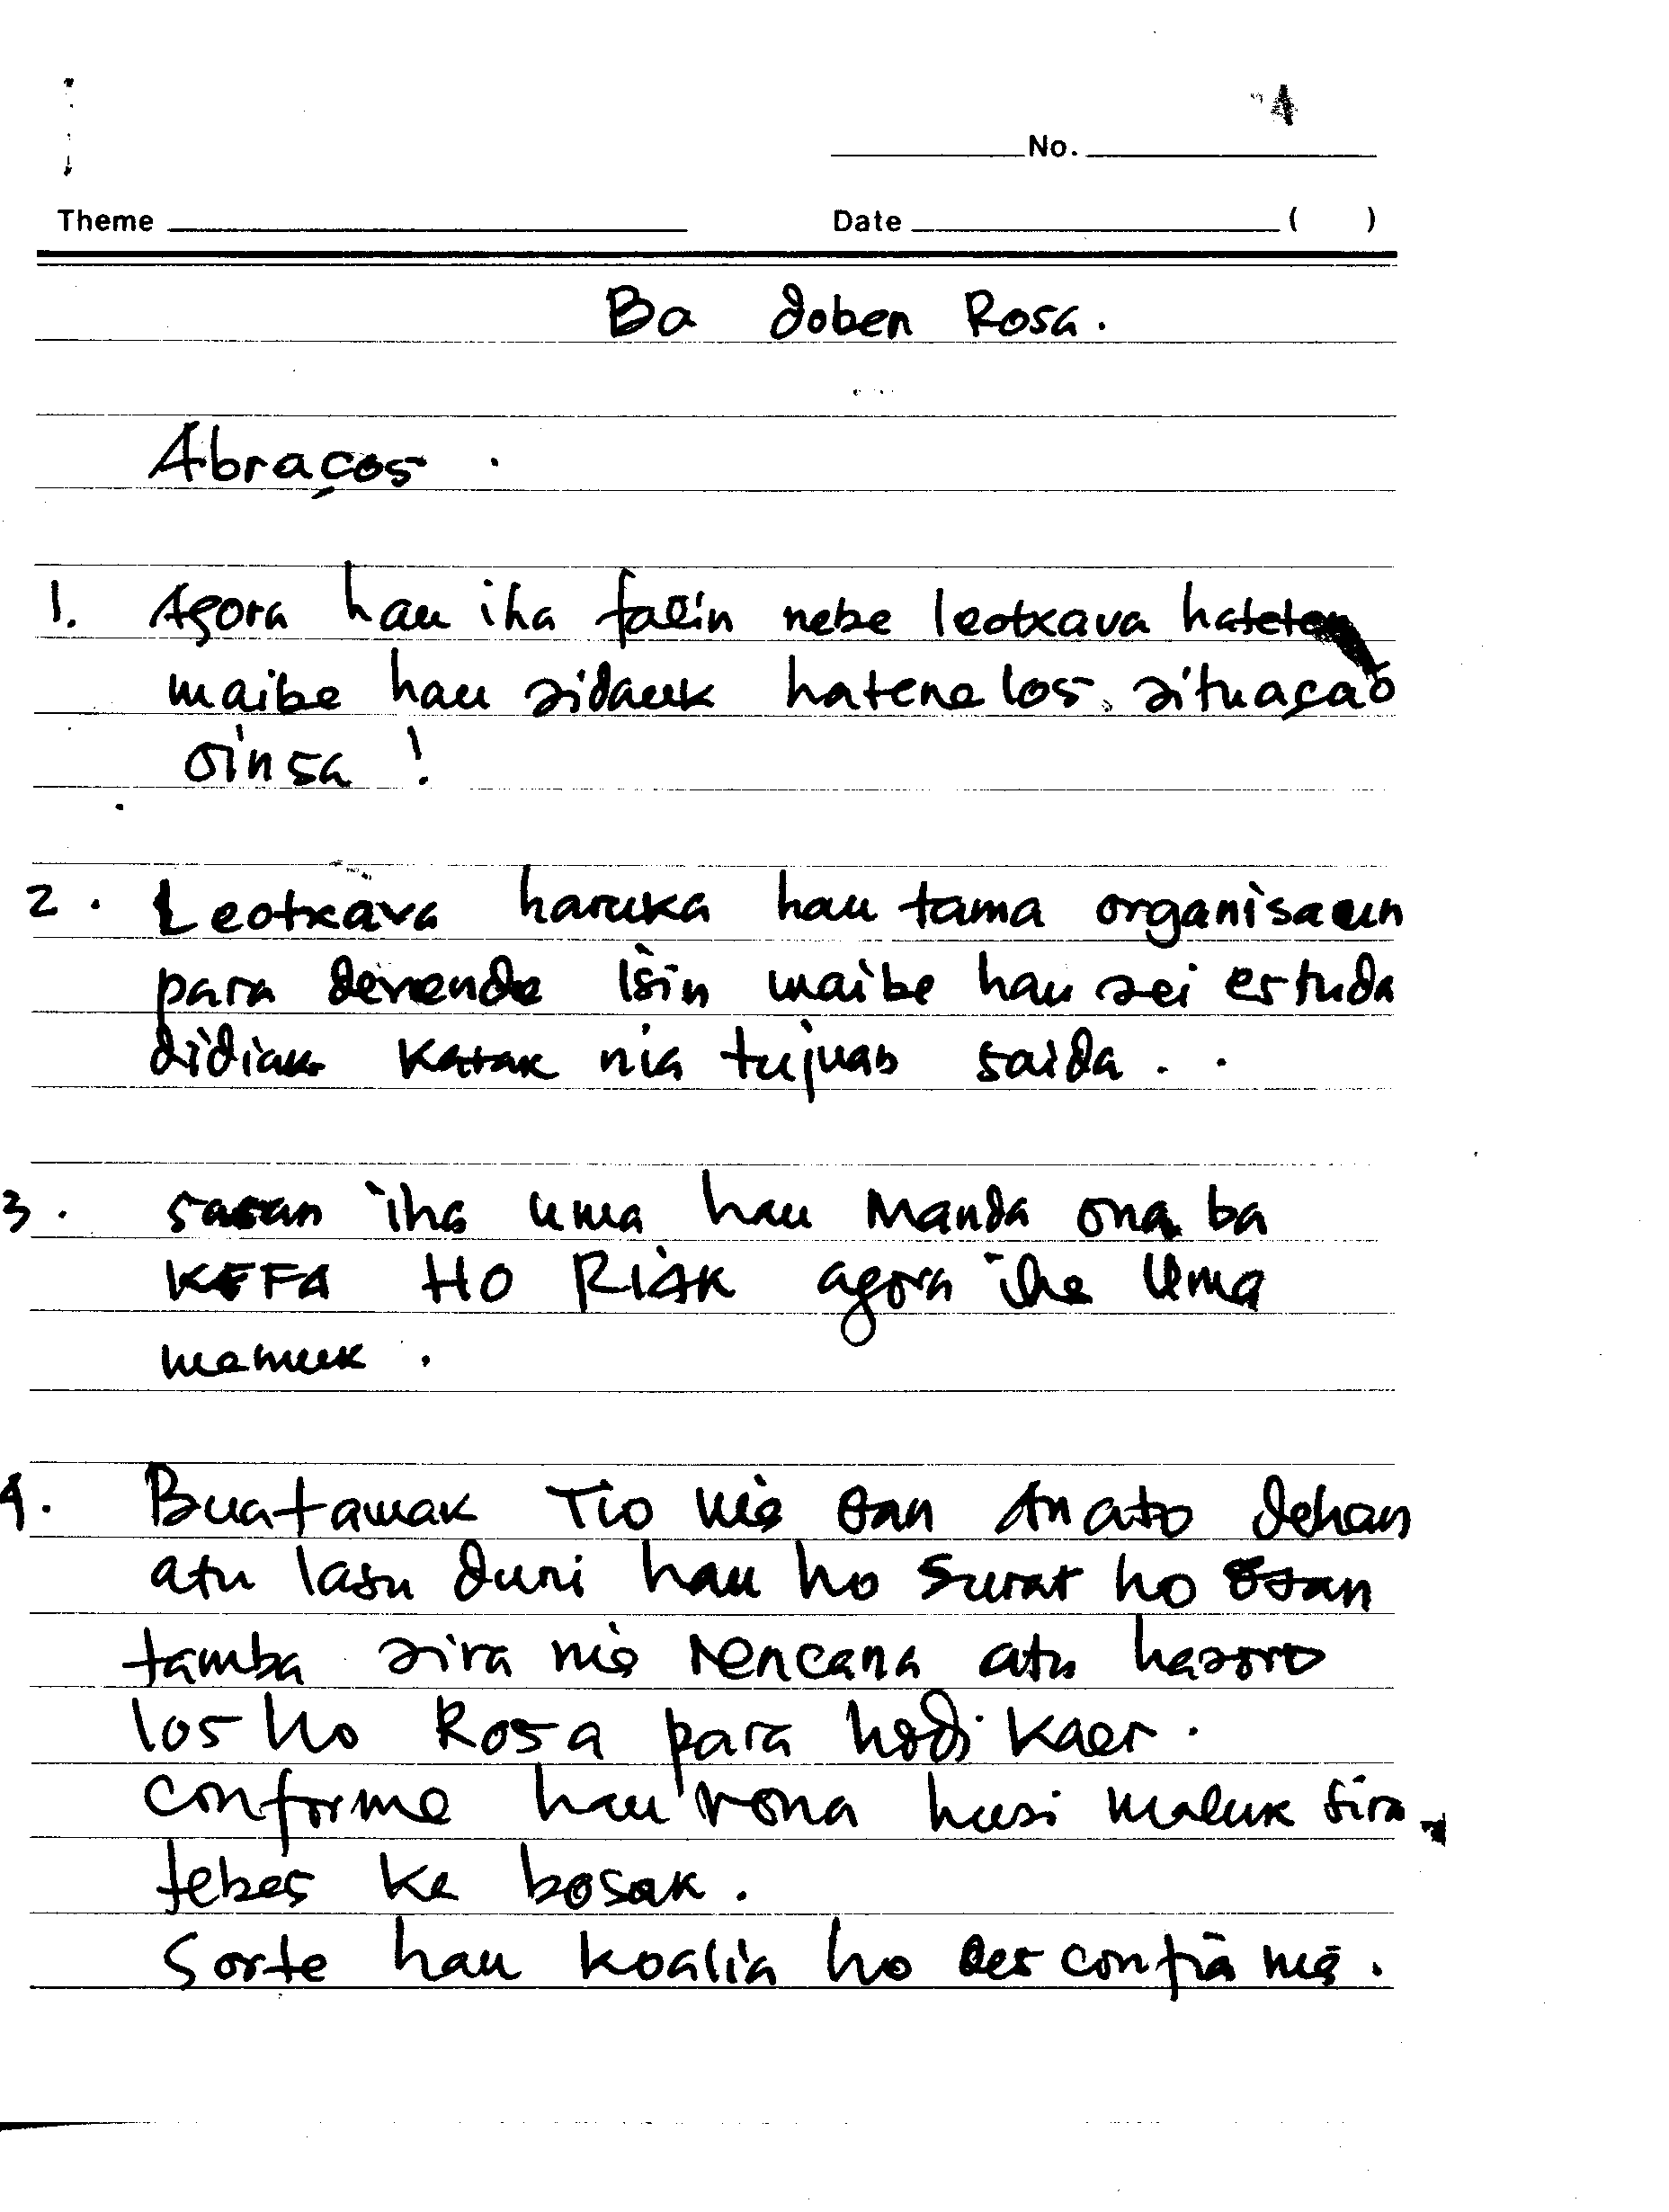 4
No.
Theme Date ( )
Ba doben Rosa.
Abraços.
1. Agora hau iha fatin nebe leotxava hateten
maibe hau sidauk hatene los situaçaõ
oinsa !
2. Leotxava haruka hau tama organisaun
para devende isin maibe hau sei estuda
didiak katak nia tujuan saida..
3. sasan iha uma hau Manda ona ba
KEFA HO RIAK agora iha uma
mamuk.
4. Buatamak Tio nia oan Anato dehan
atu lasu duni hau ho surat ho osan
tamba sira nia rencana atu hasoro
los ho Rosa para hodi kaer.
conforme hau rona husi maluk sira
tebes ke bosok.
Sorte hau koalia ho desconfia nia.